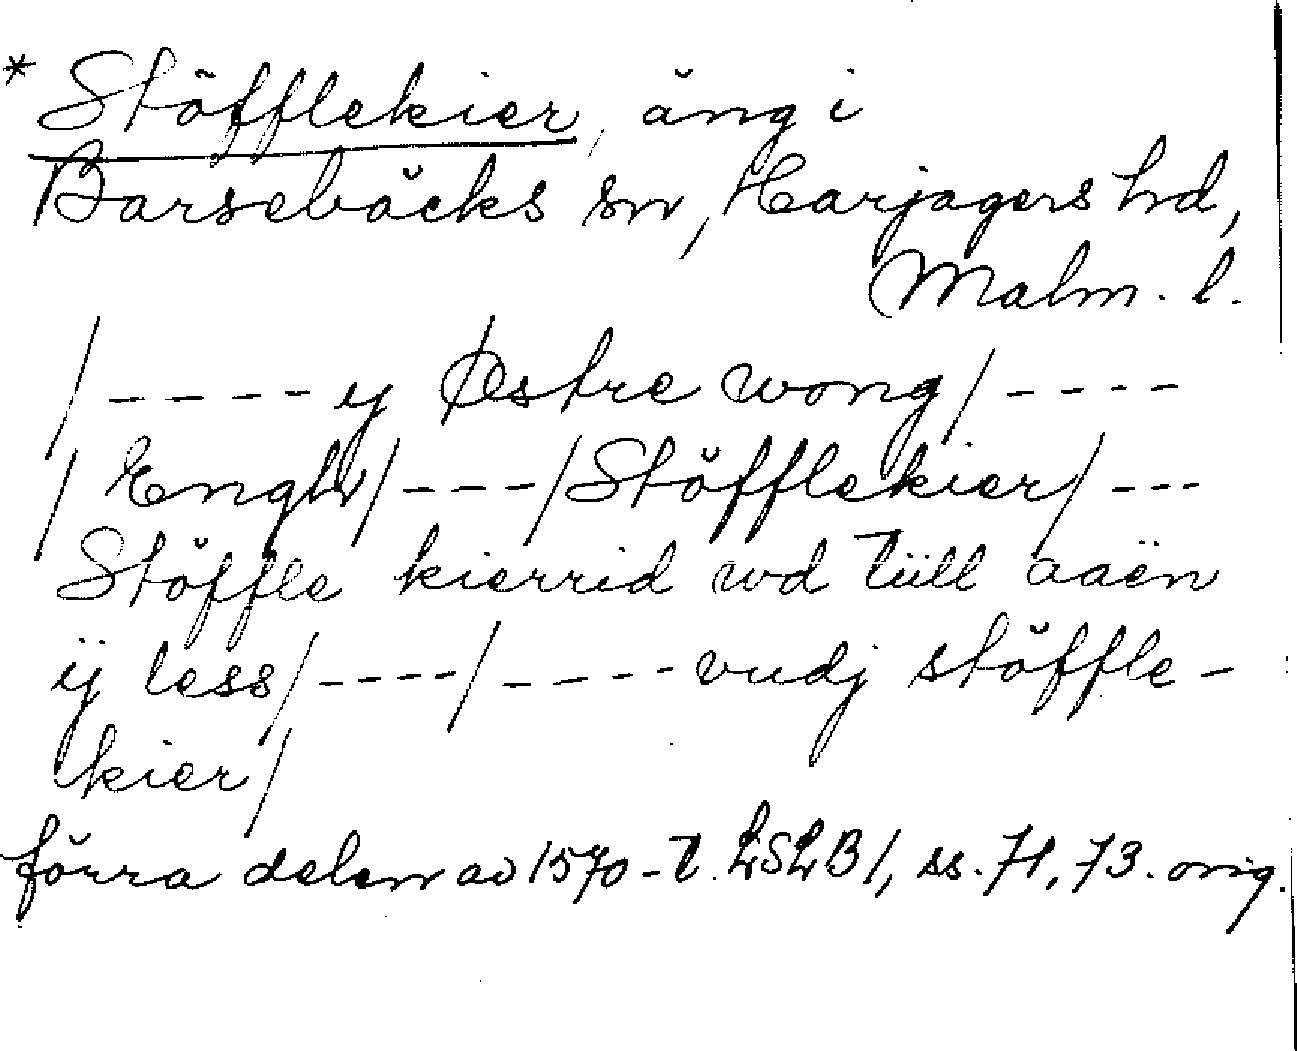 * Stöfflekier, äng i
Barsebäcks sn, Harjagers hd,
Malm. l.
/----- y Østre wong/----
/ Engh/---/Stöfflekier/---
Stöffle kierrid wd tüll aaën
ÿ less/----/-----vudj stöffle-
kier/
förra delen av 1570-t. LSLB 1, ss. 71, 73. orig.